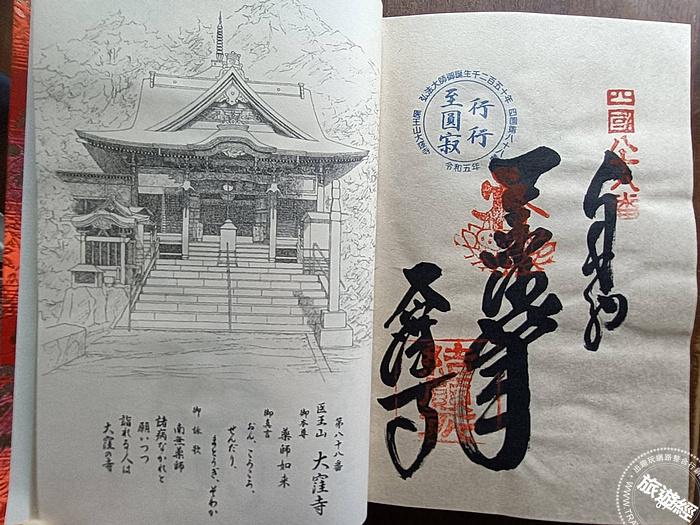 四國八十八番
奉納
弘法大師御誕生千二百五十年
行行
至圓寂
令和五年
大窪寺
第八十八番
医王山 大窪寺
御本尊
薬師如来
御真言
おん、ころころ、
せんだり、
まとうぎ、そわか
御詠歌
南無薬師
諸病なかれと
願いつつ
詣れる人は
大窪の寺
旅遊經